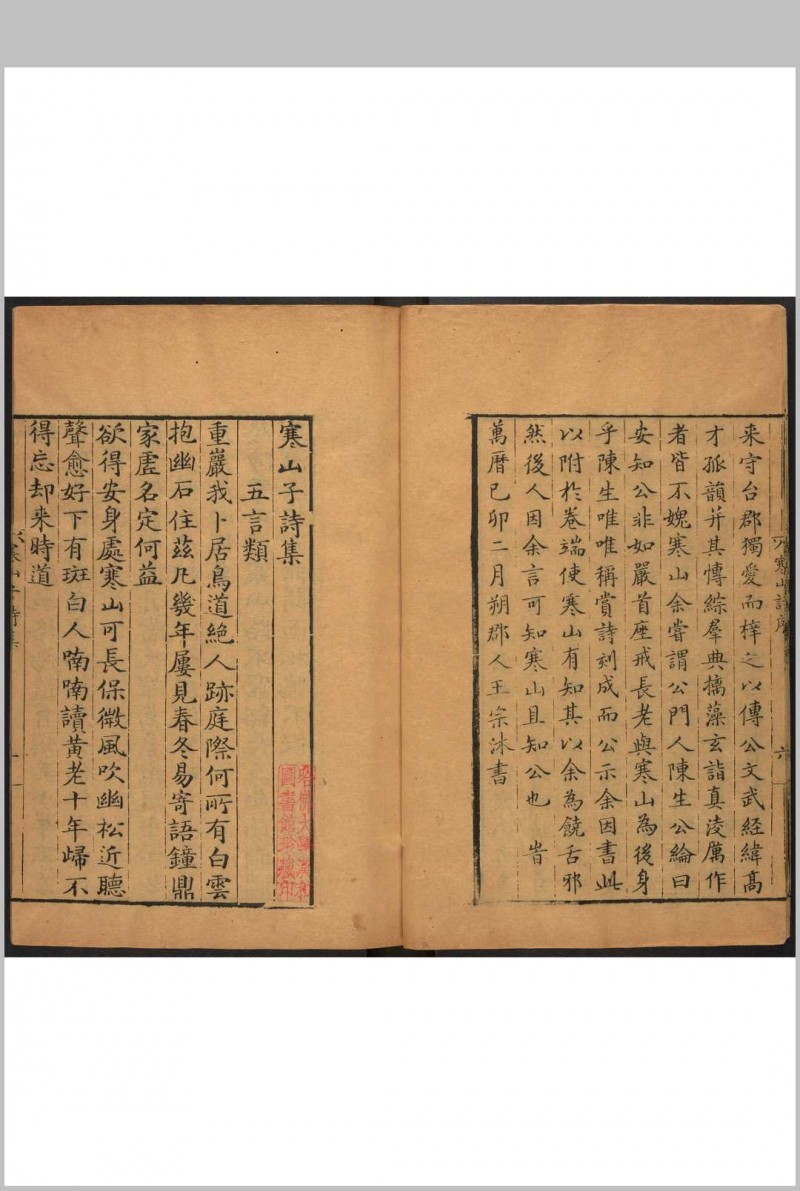 来守台郡獨愛而梓之以傳公文武經緯高
才孤韻并其慱綜羣典摛藻玄詣真淩厲作
者皆不媿寒山余嘗謂公門人陳生公綸曰
安知公非如嚴首座戒長老與寒山為後身
乎陳生唯唯稱賞詩刻成而公示余因書此
以附於卷端使寒山有知其以余為饒舌邪
然後人因余言可知寒山且知公也　旹
萬曆己卯二月朔郡人王宗沐書
寒山子詩集
五言類
重巖我卜居鳥道絕人跡庭際何所有白雲
抱幽石住茲凡幾年屢見春冬易寄語鐘鼎
家虛名定何益
欲得安身處寒山可長保微風吹幽松近聽
聲愈好下有斑白人喃喃讀黃老十年歸不
得忘却来時道